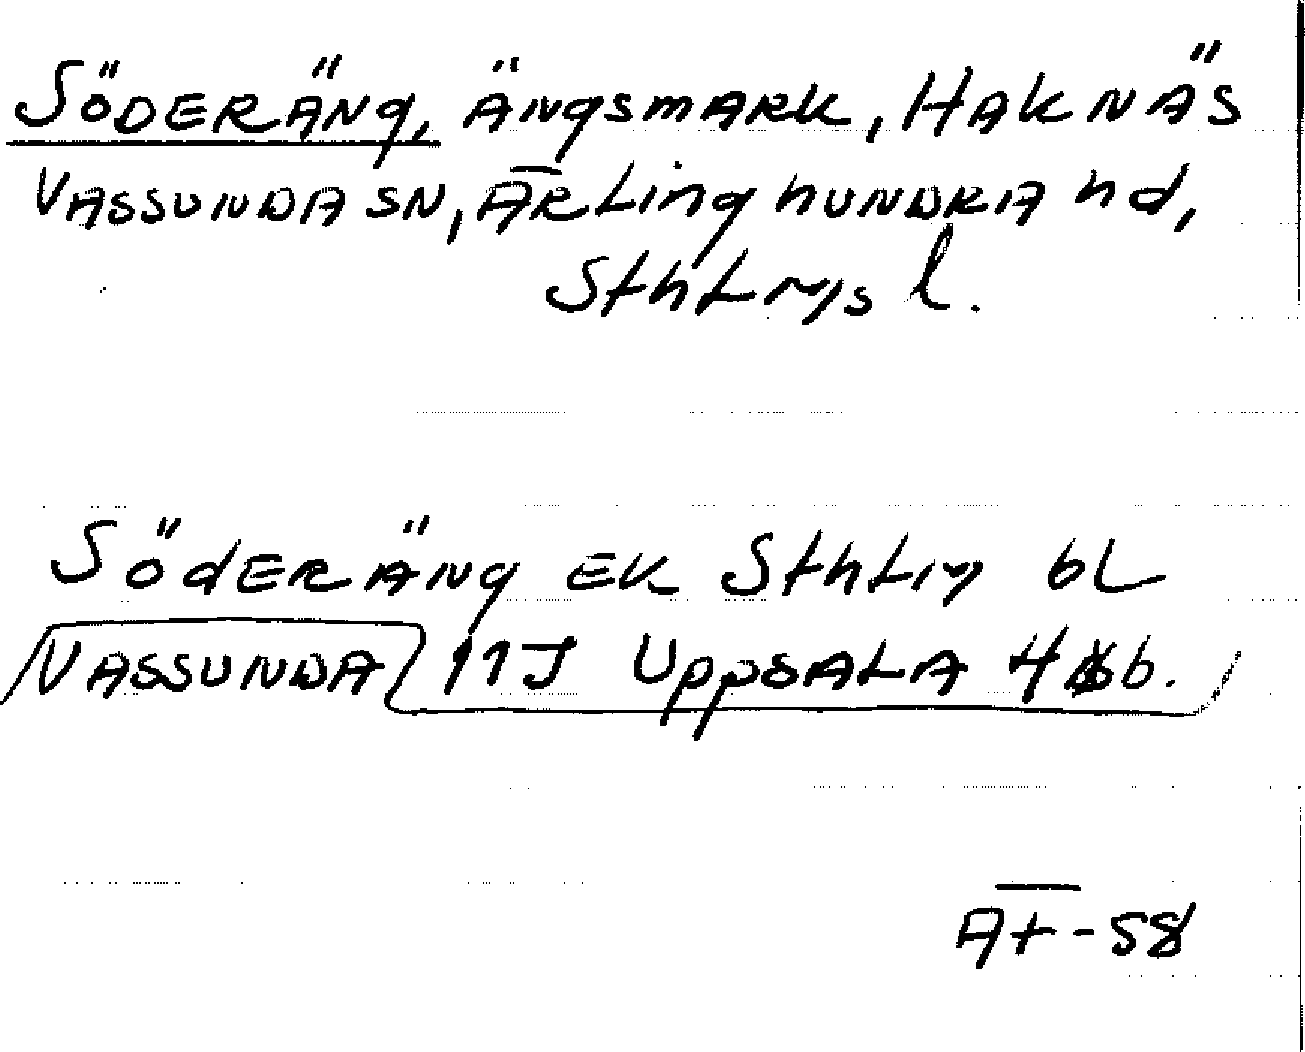 SÖDERÄNG, ÄNGSMARK, HAKNÄS
VASSUNDA SN, ÄRLINGHUNDRA hd,
Sthlms l.
SÖDERÄNG EK Sthlm bl
VASSUNDA 11J UPPSALA 4 b.
ÄT-58